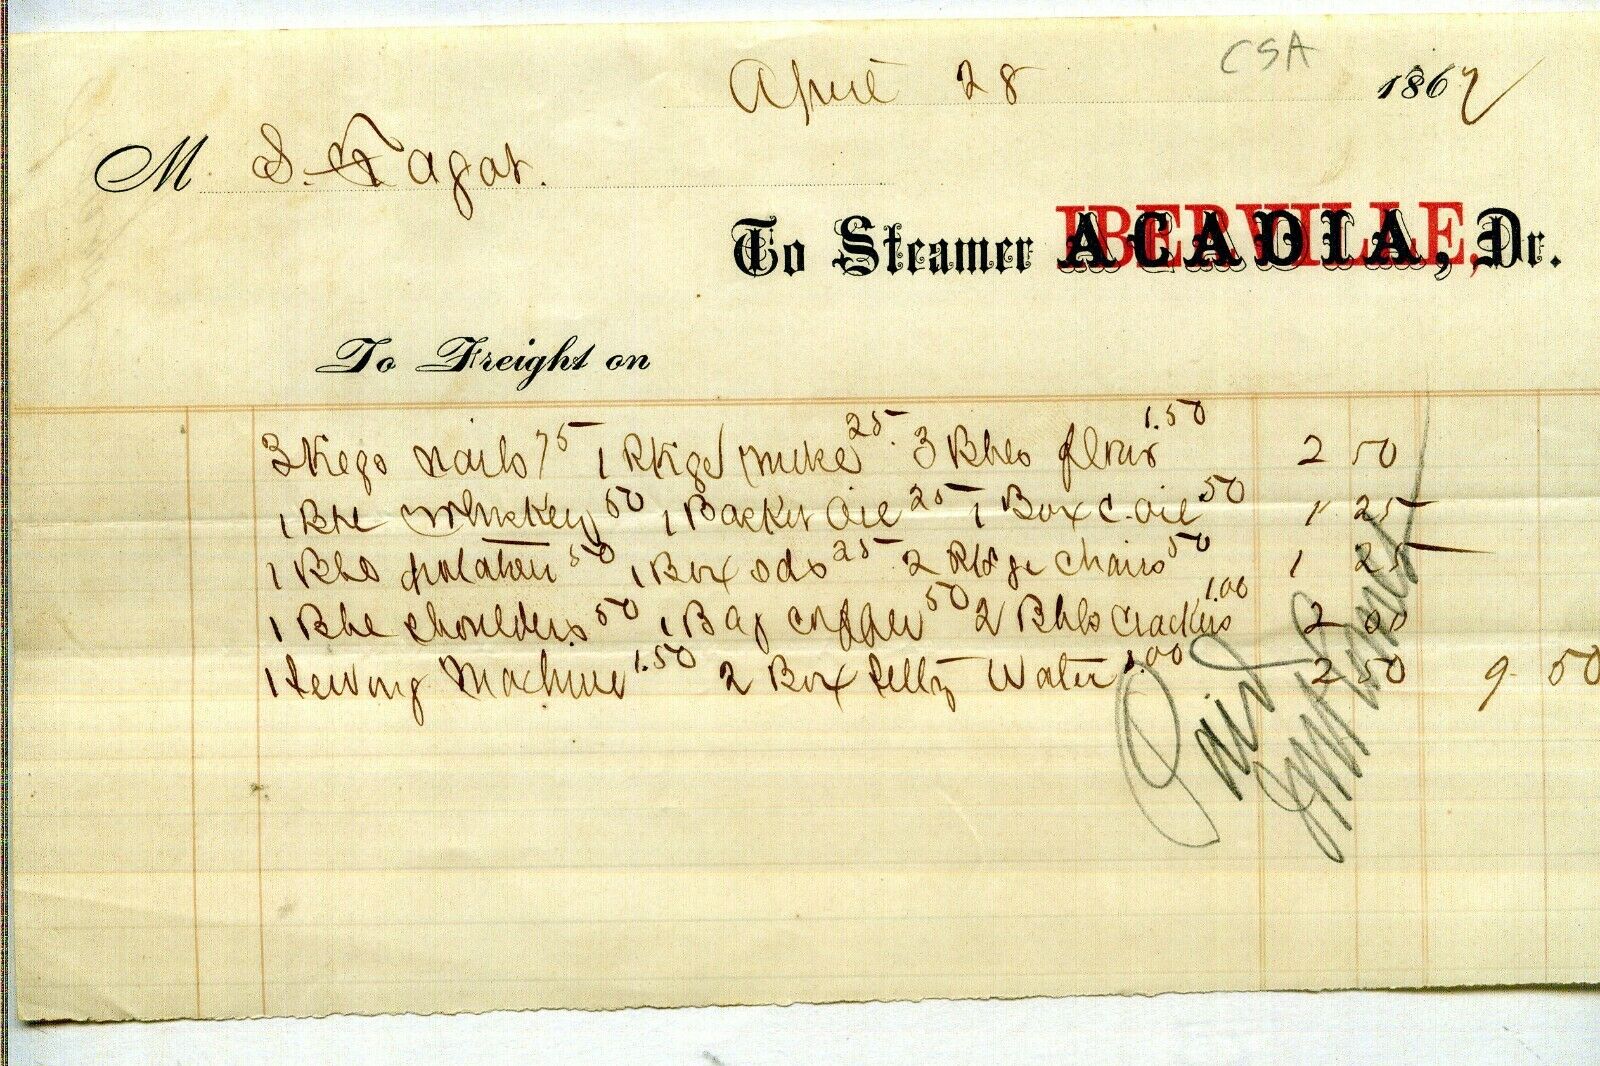 CSA
April 28 1867
M S. Fagot.
To Steamer ACADIA, IBERVILLE, Dr.
To Freight on
3 Kegs nails 75 1 Pkge 25 3 Bbls flour 1.50 2 50
1 Bbl Whiskey 50 1 Basket Oil 25 1 Box C. oil 50 1 25
1 Bbl potatoes 50 1 Box sds 25 2 Pkge Chairs 50 1 25
1 Bbl shoulders 50 1 Bag coffee 50 2 Bbls Crackers 1.00 2 00
1 Sewing Machine 1.50 2 Box Seltz Water 1.00 2 50 9 50
Paid